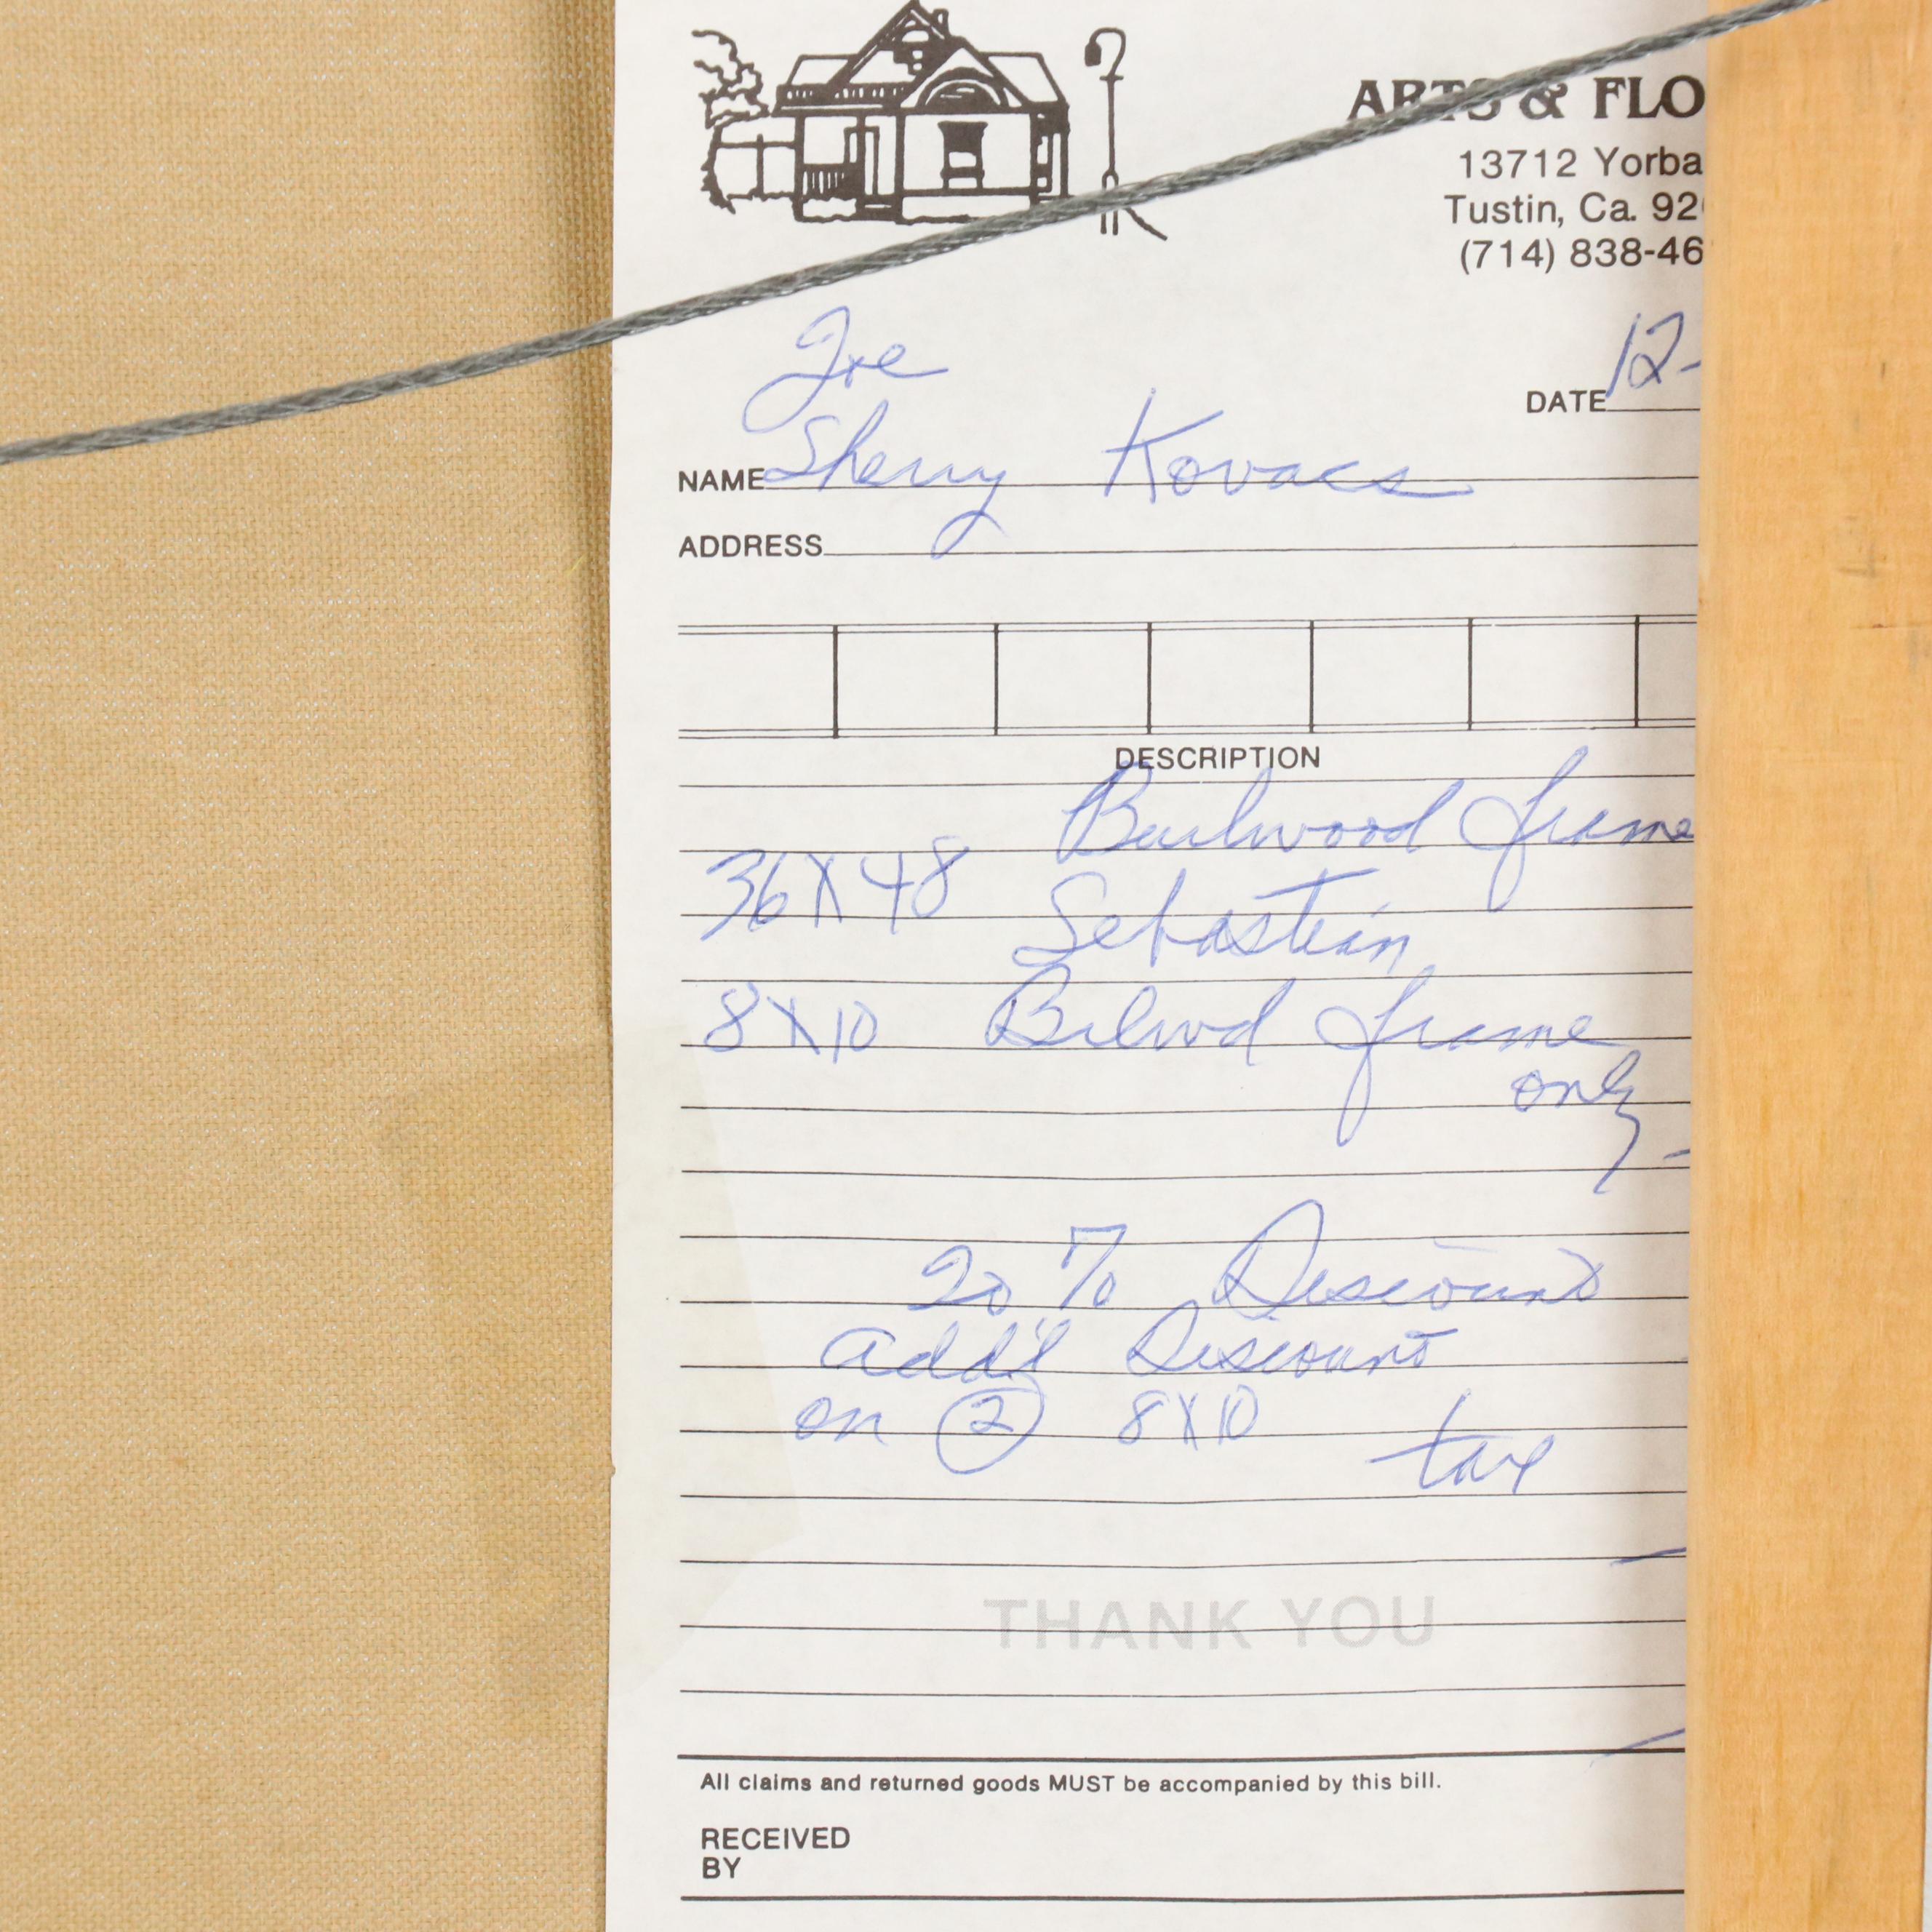 ARTS & FLO
13712 Yorba
Tustin, Ca. 92
(714) 838-46
Joe
DATE 12-
NAME Sherry Kovacs
ADDRESS
DESCRIPTION
Burlwood frame
36 X 48
Sebastian
8X10 Brlwd frame
only
20 % Discount
add'l Discount
on 2 8X10
tax
THANK YOU
All claims and returned goods MUST be accompanied by this bill.
RECEIVED
BY